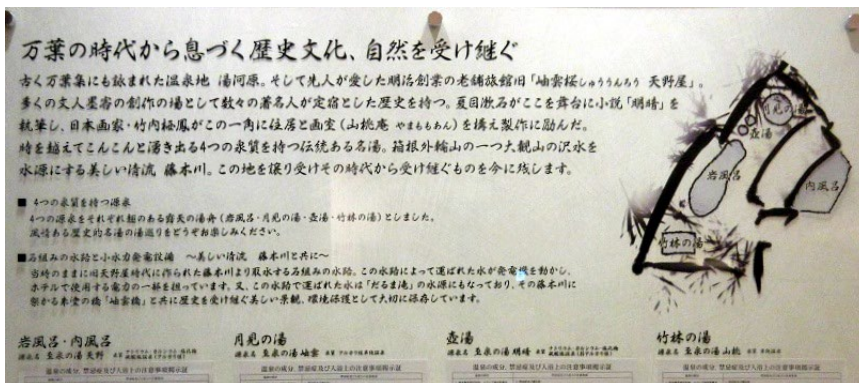 万葉の時代から息づく歴史文化、自然を受け継ぐ
古く万葉集にも詠まれた温泉地 湯河原。そして先人が愛した明治創業の老舗旅館旧「岫雲楼しゅううんろう 天野屋」。
多くの文人墨客の創作の湯として数々の著名人が定宿とした歴史を持つ。夏目漱石がここを舞台に小説「明暗」を
執筆し、日本画家・竹内栖鳳がこの一角に住居と画室(山桃庵 やまももあん)を構え製作に励んだ。
時を越えてこんこんと湧き出る4つの泉質を持つ伝統ある名湯。箱根外輪山の一つ大観山の沢水を
水源にする美しい清流 藤木川。この地を譲り受けその時代から受け継ぐものを今に残します。
月見の湯
壺湯
岩風呂
内風呂
竹林の湯
■ 4つの泉質を持つ源泉
4つの源泉をそれぞれ趣のある露天の湯舟(岩風呂・月見の湯・壺湯・竹林の湯)としました。
風情ある歴史的名湯の湯巡りをどうぞお楽しみください。
■石組みの水路と小水力発電設備 〜美しい清流 藤木川と共に〜
当時のままに旧天野屋時代に作られた藤木川より取水する石組みの水路。この水路によって運ばれた水が発電機を動かし、
ホテルで使用する電力の一部を担っています。又、この水路で運ばれた水は「だるま滝」の水源にもなっており、その藤木川に
架かる朱塗の橋「岫雲橋」と共に歴史を受け継ぐ美しい景観、環境保護として大切に保存しています。
岩風呂・内風呂
源泉名 至泉の湯 天野 泉質
月見の湯
源泉名 至泉の湯 岫雲 泉質
壺湯
源泉名 至泉の湯 明暗 泉質
竹林の湯
源泉名 至泉の湯 山桃 泉質
温泉の成分、禁忌症及び入浴上の注意事項掲示証
温泉の成分、禁忌症及び入浴上の注意事項掲示証
温泉の成分、禁忌症及び入浴上の注意事項掲示証
温泉の成分、禁忌症及び入浴上の注意事項掲示証